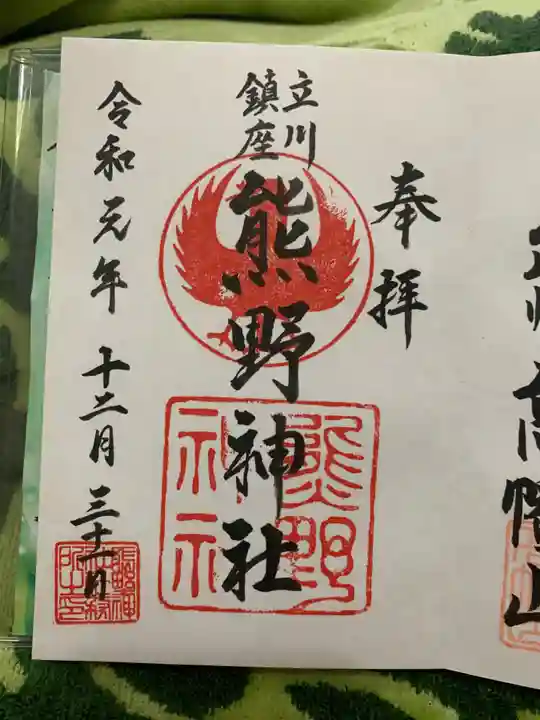 奉拝
立川
鎮座
熊野神社
熊野
神社
令和元年 十二月 三十一日
高幡山